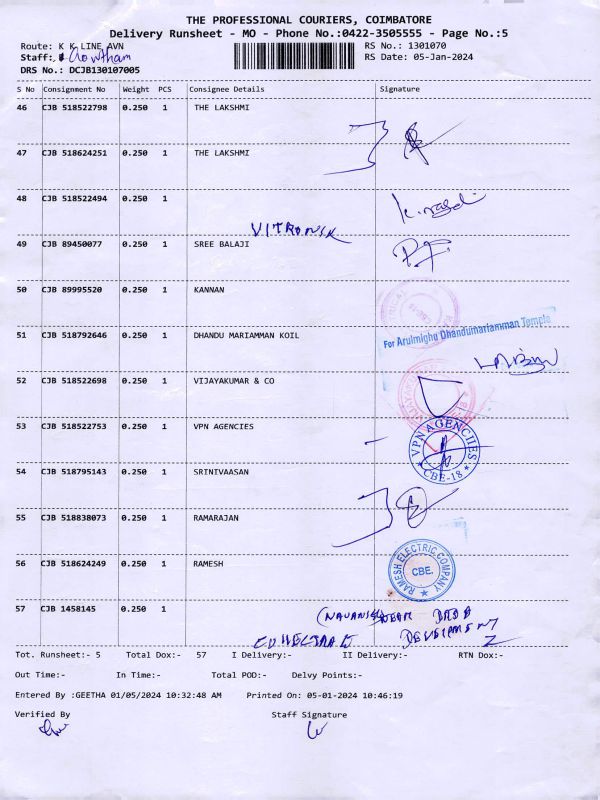 THE PROFESSIONAL COURIERS, COIMBATORE
Delivery Runsheet - MO - Phone No.:0422-3505555 - Page No.:5
Route: K K LINE AVN
RS No.: 1301070
Staff: Gowtham
RS Date: 05-Jan-2024
DRS No.: DCJB130107005
S No Consignment No Weight PCS Consignee Details Signature
46 CJB 518522798 0.250 1 THE LAKSHMI
47 CJB 518624251 0.250 1 THE LAKSHMI
48 CJB 518522494 0.250 1
VITRONIK
49 CJB 89450077 0.250 1 SREE BALAJI
50 CJB 89995520 0.250 1 KANNAN
51 CJB 518792646 0.250 1 DHANDU MARIAMMAN KOIL
For Arulmighu Dhandumariamman Temple
52 CJB 518522698 0.250 1 VIJAYAKUMAR & CO
53 CJB 518522753 0.250 1 VPN AGENCIES
VPN AGENCIES
CBE-18
54 CJB 518795143 0.250 1 SRINIVAASAN
55 CJB 518838073 0.250 1 RAMARAJAN
56 CJB 518624249 0.250 1 RAMESH
RAMESH ELECTRIC COMPANY
CBE.
57 CJB 1458145 0.250 1
Tot. Runsheet:- 5 Total Dox:- 57 I Delivery:- II Delivery:- RTN Dox:-
Out Time:- In Time:- Total POD:- Delvy Points:-
Entered By :GEETHA 01/05/2024 10:32:48 AM Printed On: 05-01-2024 10:46:19
Verified By Staff Signature